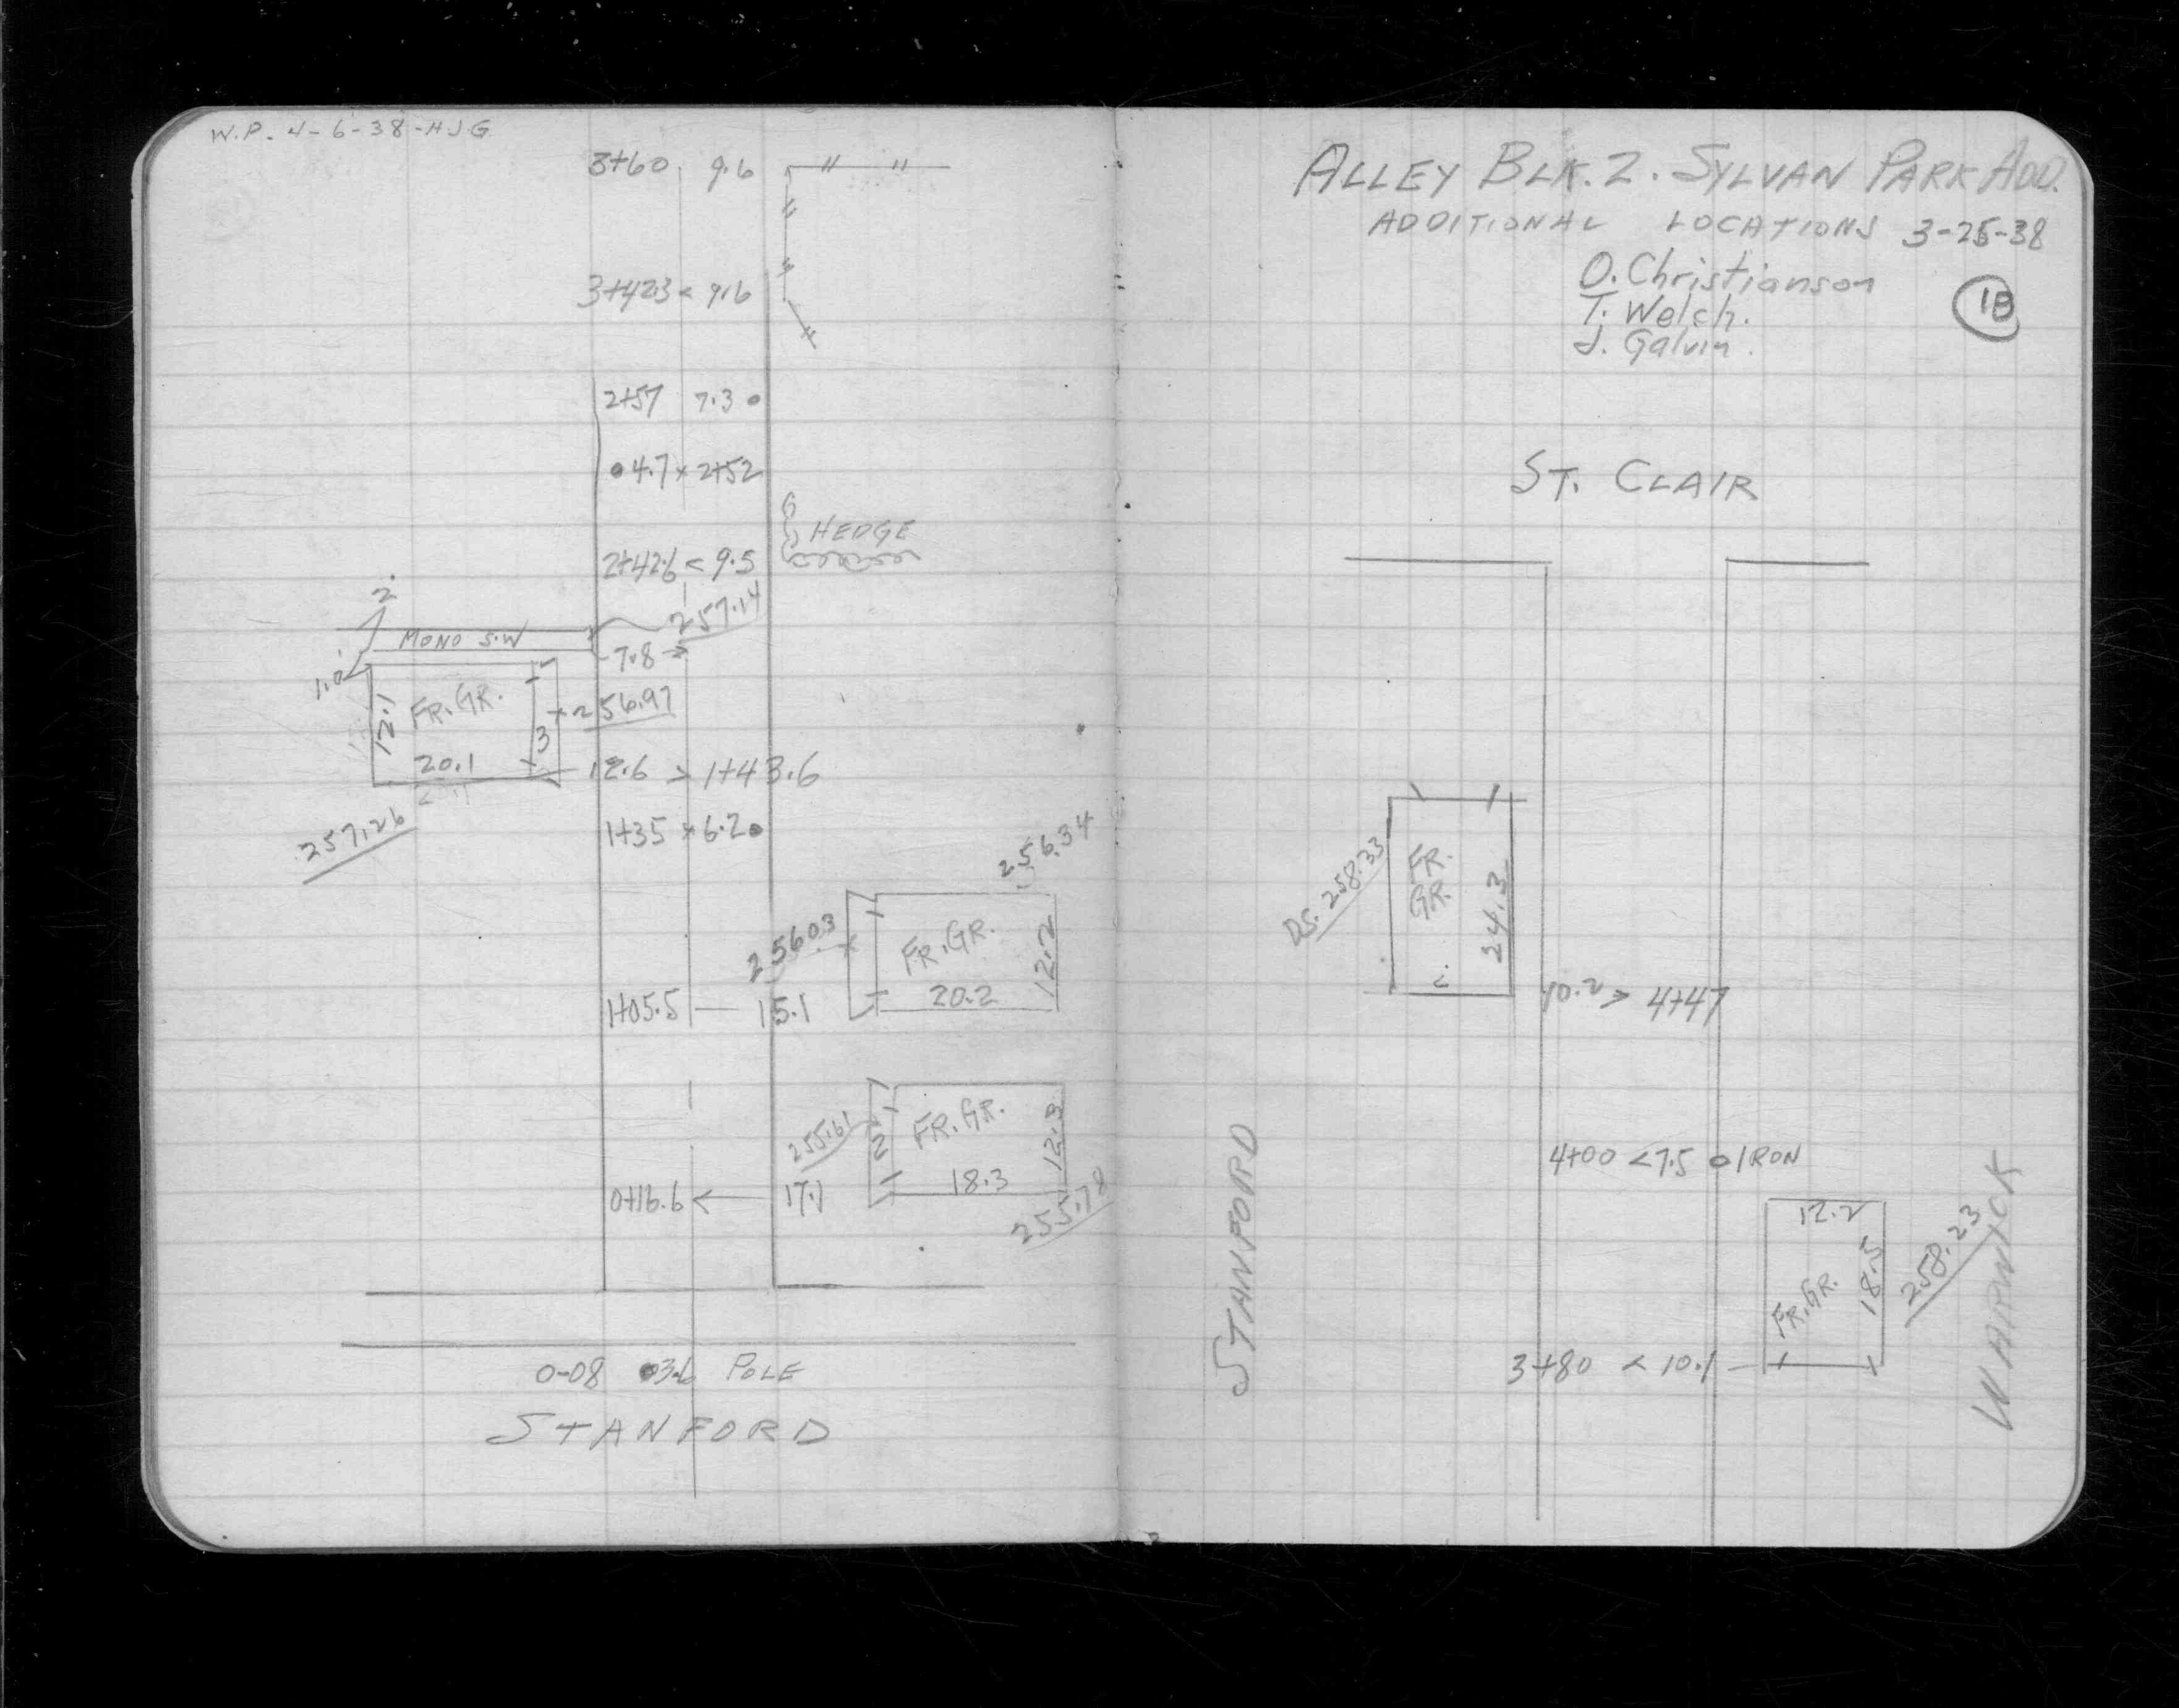 W.P. 4-6-38-HJG
3+60 9.6
3+42.3 < 9.6
2+57 7.3
4.7 x 2+52
HEDGE
2+42.6 < 9.5
257.14
2.
MONO S.W
7.8 →
1.0
12.1 FR.GR. 3
256.97
20.1
12.6 > 1+43.6
257.26
1+35 x 6.2
256.34
256.03
FR.GR. 12.2
20.2
1+05.5 — 15.1
255.61
2 FR.GR. 12.3
18.3
0+16.6 < 17.1
255.78
0-08 3.6 POLE
STANFORD
ALLEY BLK. 2. SYLVAN PARK ADD.
ADDITIONAL LOCATIONS 3-25-38
O. Christianson
T. Welch.
J. Galvin.
1B
ST. CLAIR
D.S. 258.33
FR.
GR.
24.3
10.2 > 4+47
STANFORD
4+00 < 7.5 IRON
12.2
FR.GR. 18.5
258.23
WARWICK
3+80 < 10.1